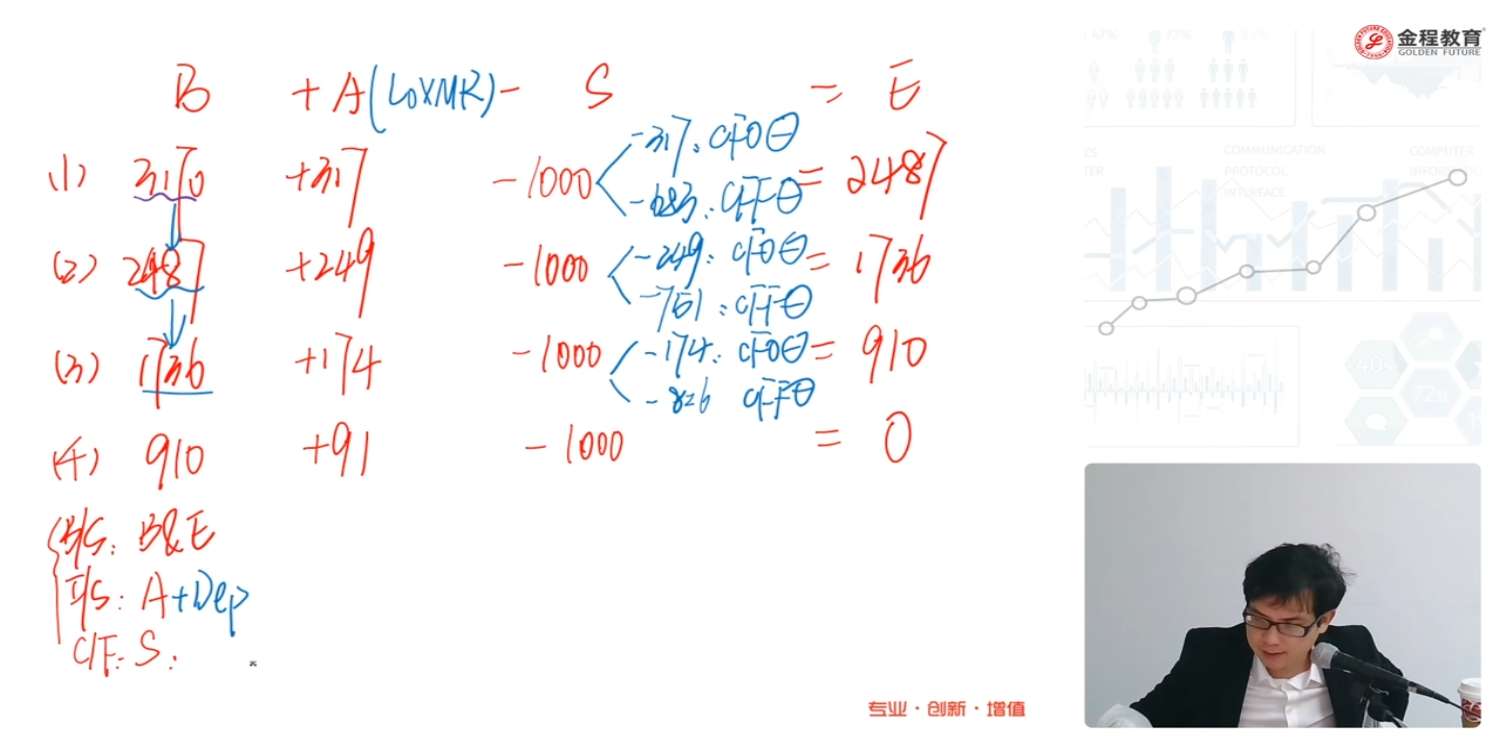 金程教育
GOLDEN FUTURE
B + A (L0×MR) - S = E
(1) 3170 +317 -1000 -317: CFO⊖ -683: CFF⊖ = 2487
(2) 2487 +249 -1000 -249: CFO⊖ -751: CFF⊖ = 1736
(3) 1736 +174 -1000 -174: CFO⊖ -826 CFF⊖ = 910
(4) 910 +91 -1000 = 0
B/S: B&E
I/S: A+Dep
C/F: S:
COMMUNICATION
PROTOCOL
COMPUTER
专业·创新·增值